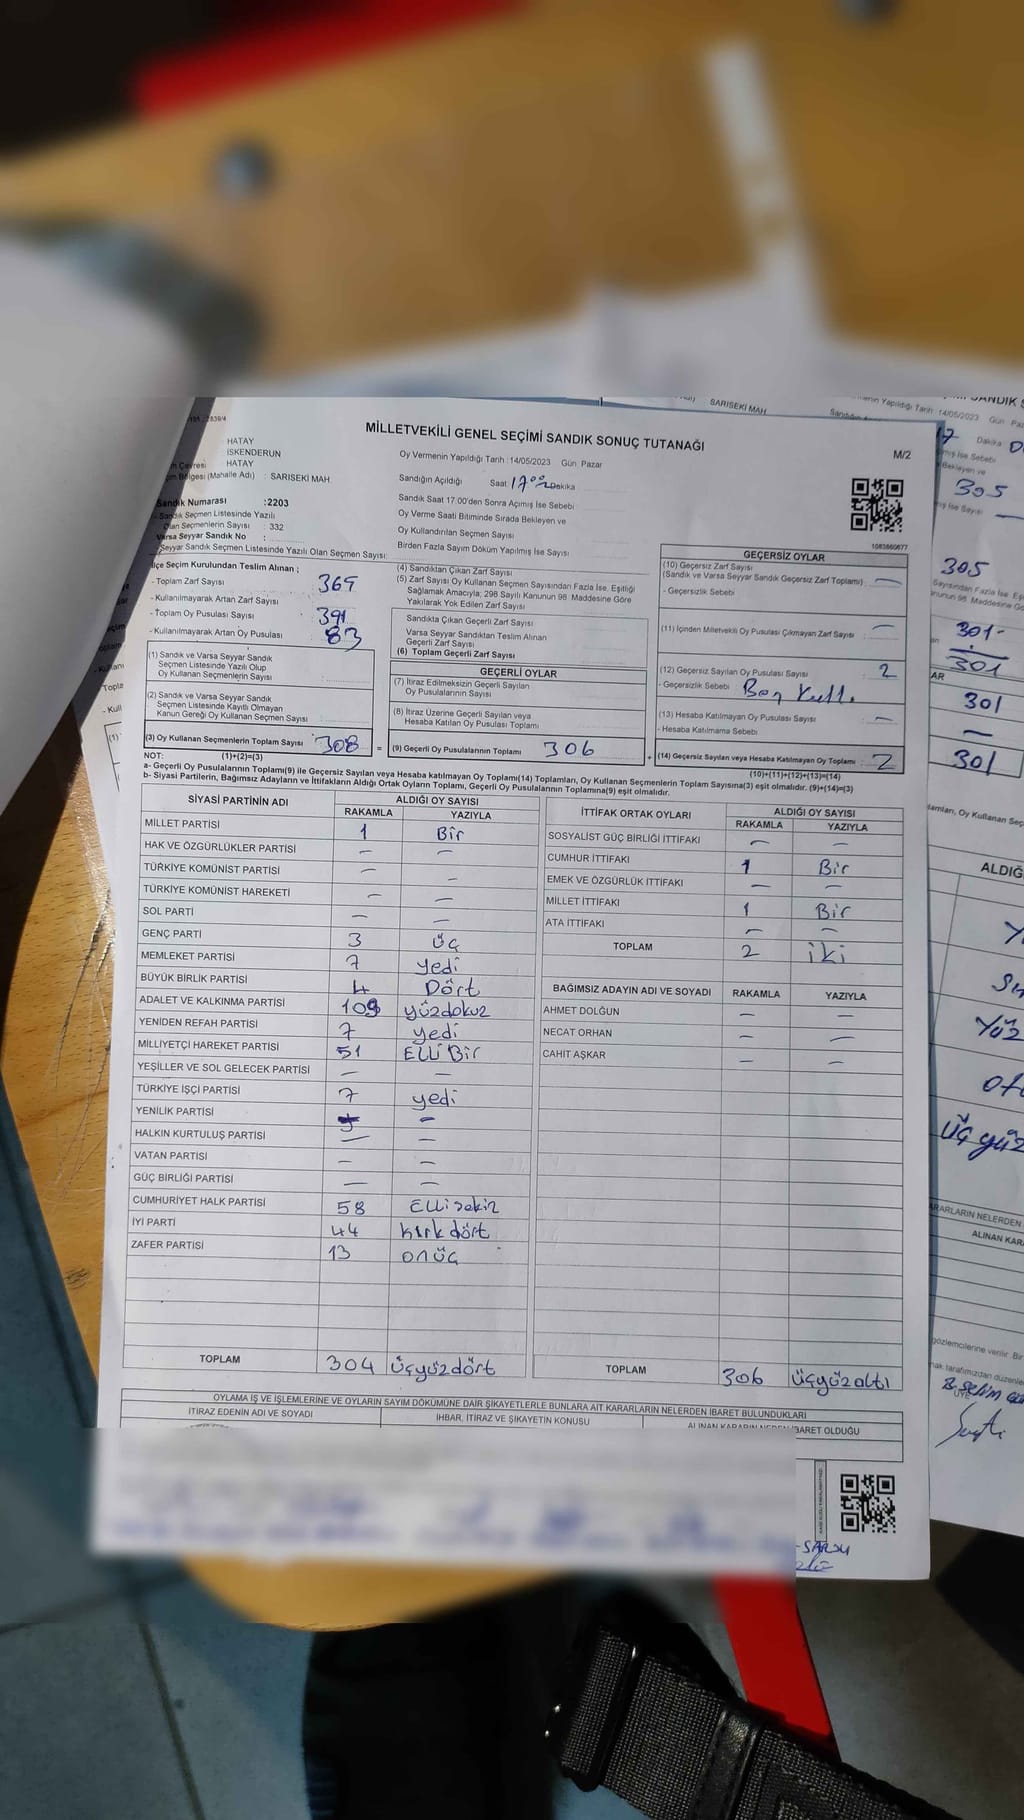 SARISEKİ MAH.
14/05/2023
MİLLETVEKİLİ GENEL SEÇİMİ SANDIK SONUÇ TUTANAĞI
M/2
HATAY
İSKENDERUN
HATAY
(Mahalle Adı) : SARISEKİ MAH.
Oy Vermenin Yapıldığı Tarih :14/05/2023 Gün: Pazar
Sandığın Açıldığı Saat 17°° Dakika
Sandık Saat 17.00'den Sonra Açımış İse Sebebi
Oy Verme Saati Bitiminde Sırada Bekleyen ve
Oy Kullandırılan Seçmen Sayısı
Birden Fazla Sayım Döküm Yapılmış İse Sayısı
Sandık Numarası :2203
- Sandık Seçmen Listesinde Yazılı
Olan Seçmenlerin Sayısı : 332
Varsa Seyyar Sandık No :
- Seyyar Sandık Seçmen Listesinde Yazılı Olan Seçmen Sayısı:
İlçe Seçim Kurulundan Teslim Alınan ;
- Toplam Zarf Sayısı 369
- Kullanılmayarak Artan Zarf Sayısı
- Toplam Oy Pusulası Sayısı 391
- Kullanılmayarak Artan Oy Pusulası 83
(1) Sandık ve Varsa Seyyar Sandık
Seçmen Listesinde Yazılı Olup
Oy Kullanan Seçmenlerin Sayısı
(2) Sandık ve Varsa Seyyar Sandık
Seçmen Listesinde Kayıtlı Olmayan
Kanun Gereği Oy Kullanan Seçmen Sayısı
(3) Oy Kullanan Seçmenlerin Toplam Sayısı 308
(1)+(2)=(3)
=
(4) Sandıktan Çıkan Zarf Sayısı
(5) Zarf Sayısı Oy Kullanan Seçmen Sayısından Fazla İse, Eşitliği
Sağlamak Amacıyla; 298 Sayılı Kanunun 98. Maddesine Göre
Yakılarak Yok Edilen Zarf Sayısı
Sandıkta Çıkan Geçerli Zarf Sayısı
Varsa Seyyar Sandıktan Teslim Alınan
Geçerli Zarf Sayısı
(6) Toplam Geçerli Zarf Sayısı
GEÇERLİ OYLAR
(7) İtiraz Edilmeksizin Geçerli Sayılan
Oy Pusulalarının Sayısı
(8) İtiraz Üzerine Geçerli Sayılan veya
Hesaba Katılan Oy Pusulası Toplamı
(9) Geçerli Oy Pusulalarının Toplamı 306
+
1083860677
GEÇERSİZ OYLAR
(10) Geçersiz Zarf Sayısı
(Sandık ve Varsa Seyyar Sandık Geçersiz Zarf Toplamı) —
- Geçersizlik Sebebi
(11) İçinden Milletvekili Oy Pusulası Çıkmayan Zarf Sayısı —
(12) Geçersiz Sayılan Oy Pusulası Sayısı 2
- Geçersizlik Sebebi
(13) Hesaba Katılmayan Oy Pusulası Sayısı —
- Hesaba Katılmama Sebebi
(14) Geçersiz Sayılan veya Hesaba Katılmayan Oy Toplamı 2
(10)+(11)+(12)+(13)=(14)
NOT:
a- Geçerli Oy Pusulalarının Toplamı(9) ile Geçersiz Sayılan veya Hesaba katılmayan Oy Toplamı(14) Toplamları, Oy Kullanan Seçmenlerin Toplam Sayısına(3) eşit olmalıdır. (9)+(14)=(3)
b- Siyasi Partilerin, Bağımsız Adayların ve İttifakların Aldığı Ortak Oyların Toplamı, Geçerli Oy Pusulalarının Toplamına(9) eşit olmalıdır.
SİYASİ PARTİNİN ADI ALDIĞI OY SAYISI
RAKAMLA YAZIYLA
MİLLET PARTİSİ 1 Bir
HAK VE ÖZGÜRLÜKLER PARTİSİ — —
TÜRKİYE KOMÜNİST PARTİSİ — —
TÜRKİYE KOMÜNİST HAREKETİ — —
SOL PARTİ — —
GENÇ PARTİ 3 üç
MEMLEKET PARTİSİ 7 yedi
BÜYÜK BİRLİK PARTİSİ 4 Dört
ADALET VE KALKINMA PARTİSİ 109 yüzdokuz
YENİDEN REFAH PARTİSİ 7 yedi
MİLLİYETÇİ HAREKET PARTİSİ 51 ELLİ Bir
YEŞİLLER VE SOL GELECEK PARTİSİ — —
TÜRKİYE İŞÇİ PARTİSİ 7 yedi
YENİLİK PARTİSİ —
HALKIN KURTULUŞ PARTİSİ — —
VATAN PARTİSİ — —
GÜÇ BİRLİĞİ PARTİSİ — —
CUMHURİYET HALK PARTİSİ 58 Elli sekiz
İYİ PARTİ 44 kırk dört
ZAFER PARTİSİ 13 onüç
TOPLAM 304 üçyüzdört
İTTİFAK ORTAK OYLARI ALDIĞI OY SAYISI
RAKAMLA YAZIYLA
SOSYALİST GÜÇ BİRLİĞİ İTTİFAKI — —
CUMHUR İTTİFAKI 1 Bir
EMEK VE ÖZGÜRLÜK İTTİFAKI — —
MİLLET İTTİFAKI 1 Bir
ATA İTTİFAKI — —
TOPLAM 2 iki
BAĞIMSIZ ADAYIN ADI VE SOYADI RAKAMLA YAZIYLA
AHMET DOLĞUN — —
NECAT ORHAN — —
CAHİT AŞKAR — —
TOPLAM 306 üçyüzaltı
OYLAMA İŞ VE İŞLEMLERİNE VE OYLARIN SAYIM DÖKÜMÜNE DAİR ŞİKAYETLERLE BUNLARA AİT KARARLARIN NELERDEN İBARET BULUNDUKLARI
İTİRAZ EDENİN ADI VE SOYADI İHBAR, İTİRAZ VE ŞİKAYETİN KONUSU ALINAN KARARIN NEDEN İBARET OLDUĞU
17 Dakika
305
305
301
301
301
—
301
ALDIĞ
ALINAN KARA